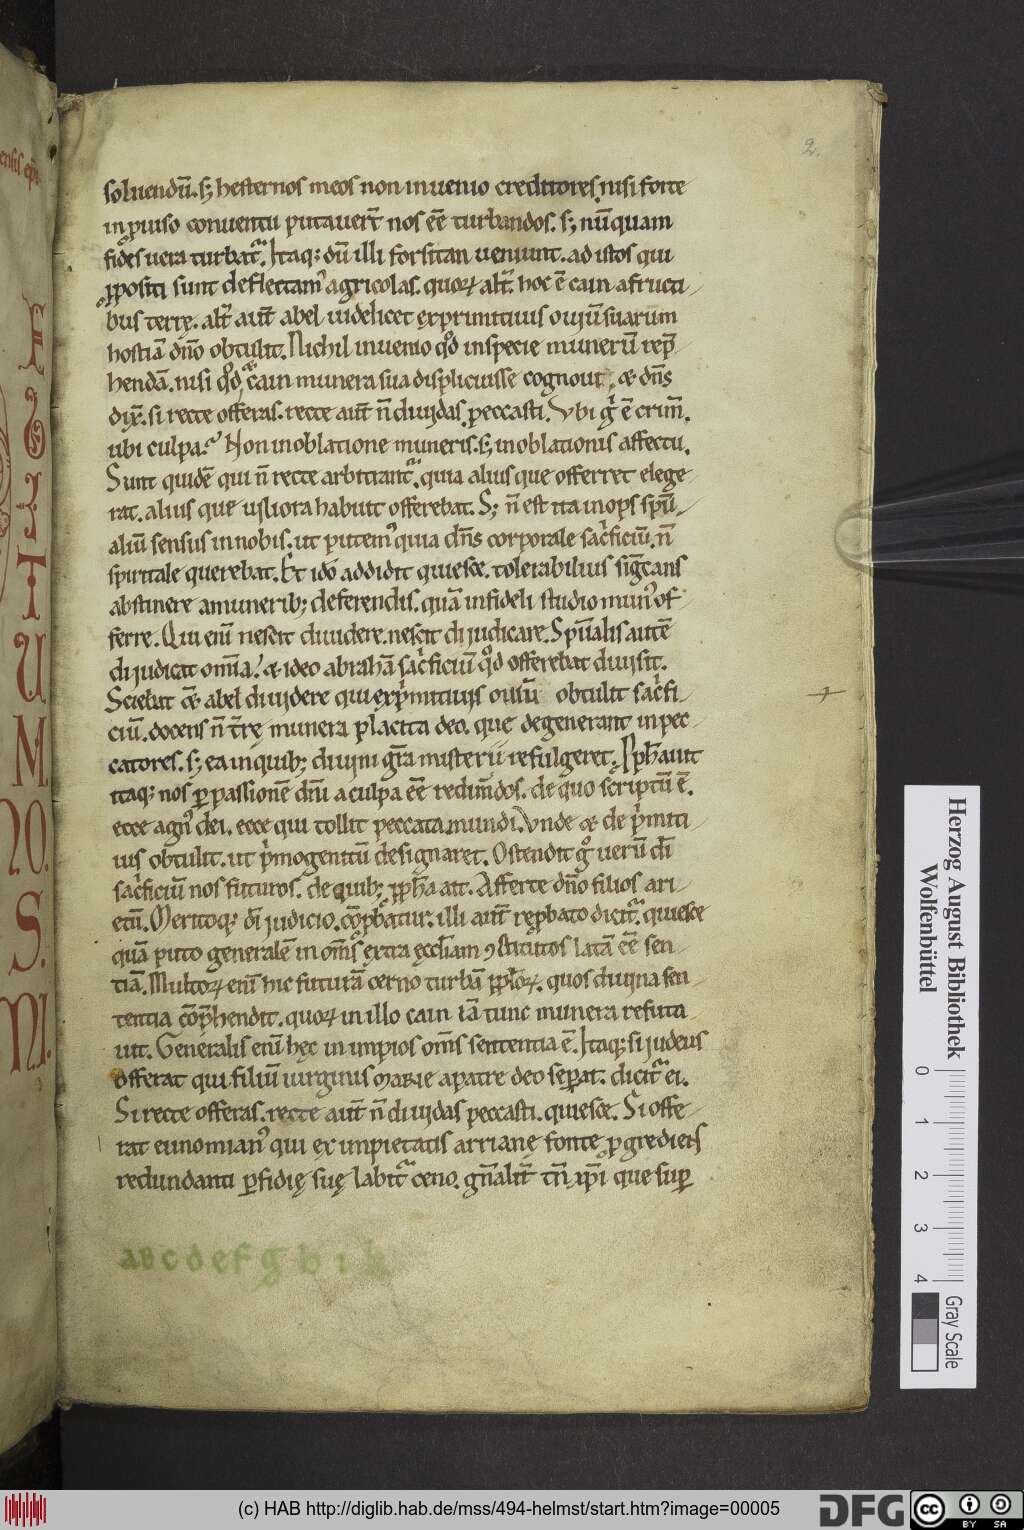 2.
soluendū. s; hesternos meos non inuenio creditores, nisi forte
in p̱riuso conuentu putauer̄t nos eē turbandos. s; nūquam
fides uera turbat᷑. Itaq; dū illi forsitan ueniunt. ad istos qui
p̱positi sunt deflectam᾽ agricolas. quoꝝ alt̄. hoc ē cain a fructi-
bus terrę. alt̄ aut̄ abel uidelicet ex primitiuis ouiū suarum
hostiā dn̄o obtulit. Nichil inuenio qd̊ in specie munerū rep̄-
hendā. nisi qd̊ & cain munera sua displicuisse cognouit, & dn̄s
dix̄. si recte offeras. recte aut̄ n̄ diuidas, peccasti. Vbi g̊ ē crim̄.
ubi culpa? Non in oblatione muneris. s; in oblationis affectu.
Sunt quidē qui n̄ recte arbitrant᷑, quia alius que offerret elege-
rat. alius que uiliora habuit offerebat. S; n̄ est ita inops spū-
aliū sensus in nobis. ut putem᾽ quia dn̄s corporale sac̊ficiū. n̄
spiritale querebat. Et idō addidit quiesce. tolerabilius sig̅cans
abstinere a munerib; deferendis. quā infideli studio mun᾽ of-
ferre. Qui enī nescit diuidere. nescit diiudicare. Spūalis autē
diiudicat om̄ia. & ideo abrahā sac̊ficiū qd̊ offerebat diuisit.
Sciebat & abel diuidere qui ex p̊mitiuis ouiū obtulit sac̊fi-
ciū. docens n̄ t̄rę munera placita deo. que degenerant in pec-
catores. s; ea in quib; diuini gr̄a misterii refulgeret. Pph̄auit
itaq; nos p̱ passionē dn̄i a culpa eē redim̄dos. de quo scriptū ē.
ecce agn᾽ dei. ecce qui tollit peccata mundi. Vnde & de p̊miti-
uis obtulit. ut p̊mogenitū designaret. Ostendit g̊ uerū dī
sac̊ficiū nos futuros. de quib; pph̄a ait. Afferte dn̄o filios ari-
etū. Meritoq; dī iudicio. cōp̱batur. illi aut̄ rep̱bato dicit᷑. quiesce
quā puto generalē in om̄s extra eccl̄iam ꝯstitutos latā eē sen-
tiā. Multoꝝ enī hic futurā cerno turbā ppl̄oꝝ. quos diuina sen-
tentia cōp̄hendit. quoꝝ in illo cain iā tunc munera refuta-
uit. Generalis enī hęc in impios om̄s sententia ē. Itaq; si iudeus
offerat qui filiū uirginis MARIE a patre deo sep̱at. dicit᷑ ei.
Si recte offeras. recte aut̄ n̄ diuidas peccasti. quiesce. Si offe-
rat eunomian᾽ qui ex impietatis arrianę fonte p̱grediens
redundanti p̱fidię suę labit᷑ ceno. gn̄alit̄ tn̄ xp̄i que sup̱
a B c d e f g h i k
F
I
T
U
M
NO.
S.
NI.
Herzog August Bibliothek
Wolfenbüttel
0
1
2
3
4
Gray Scale
(c) HAB http://diglib.hab.de/mss/494-helmst/start.htm?image=00005
DFG
cc
BY SA